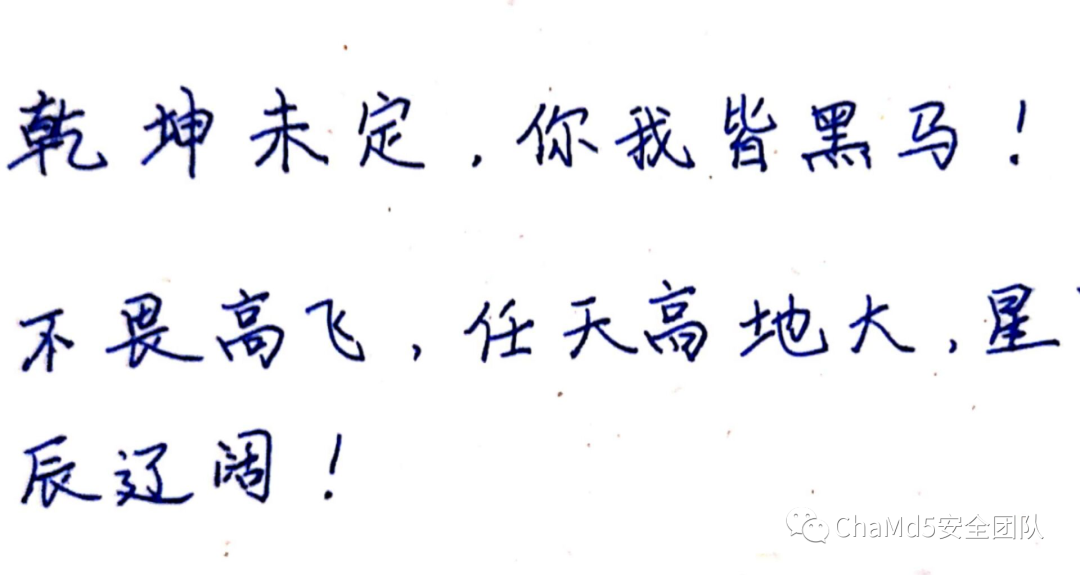 乾坤未定,你我皆黑马!
不畏高飞,任天高地大,星
辰辽阔!
ChaMd5安全团队